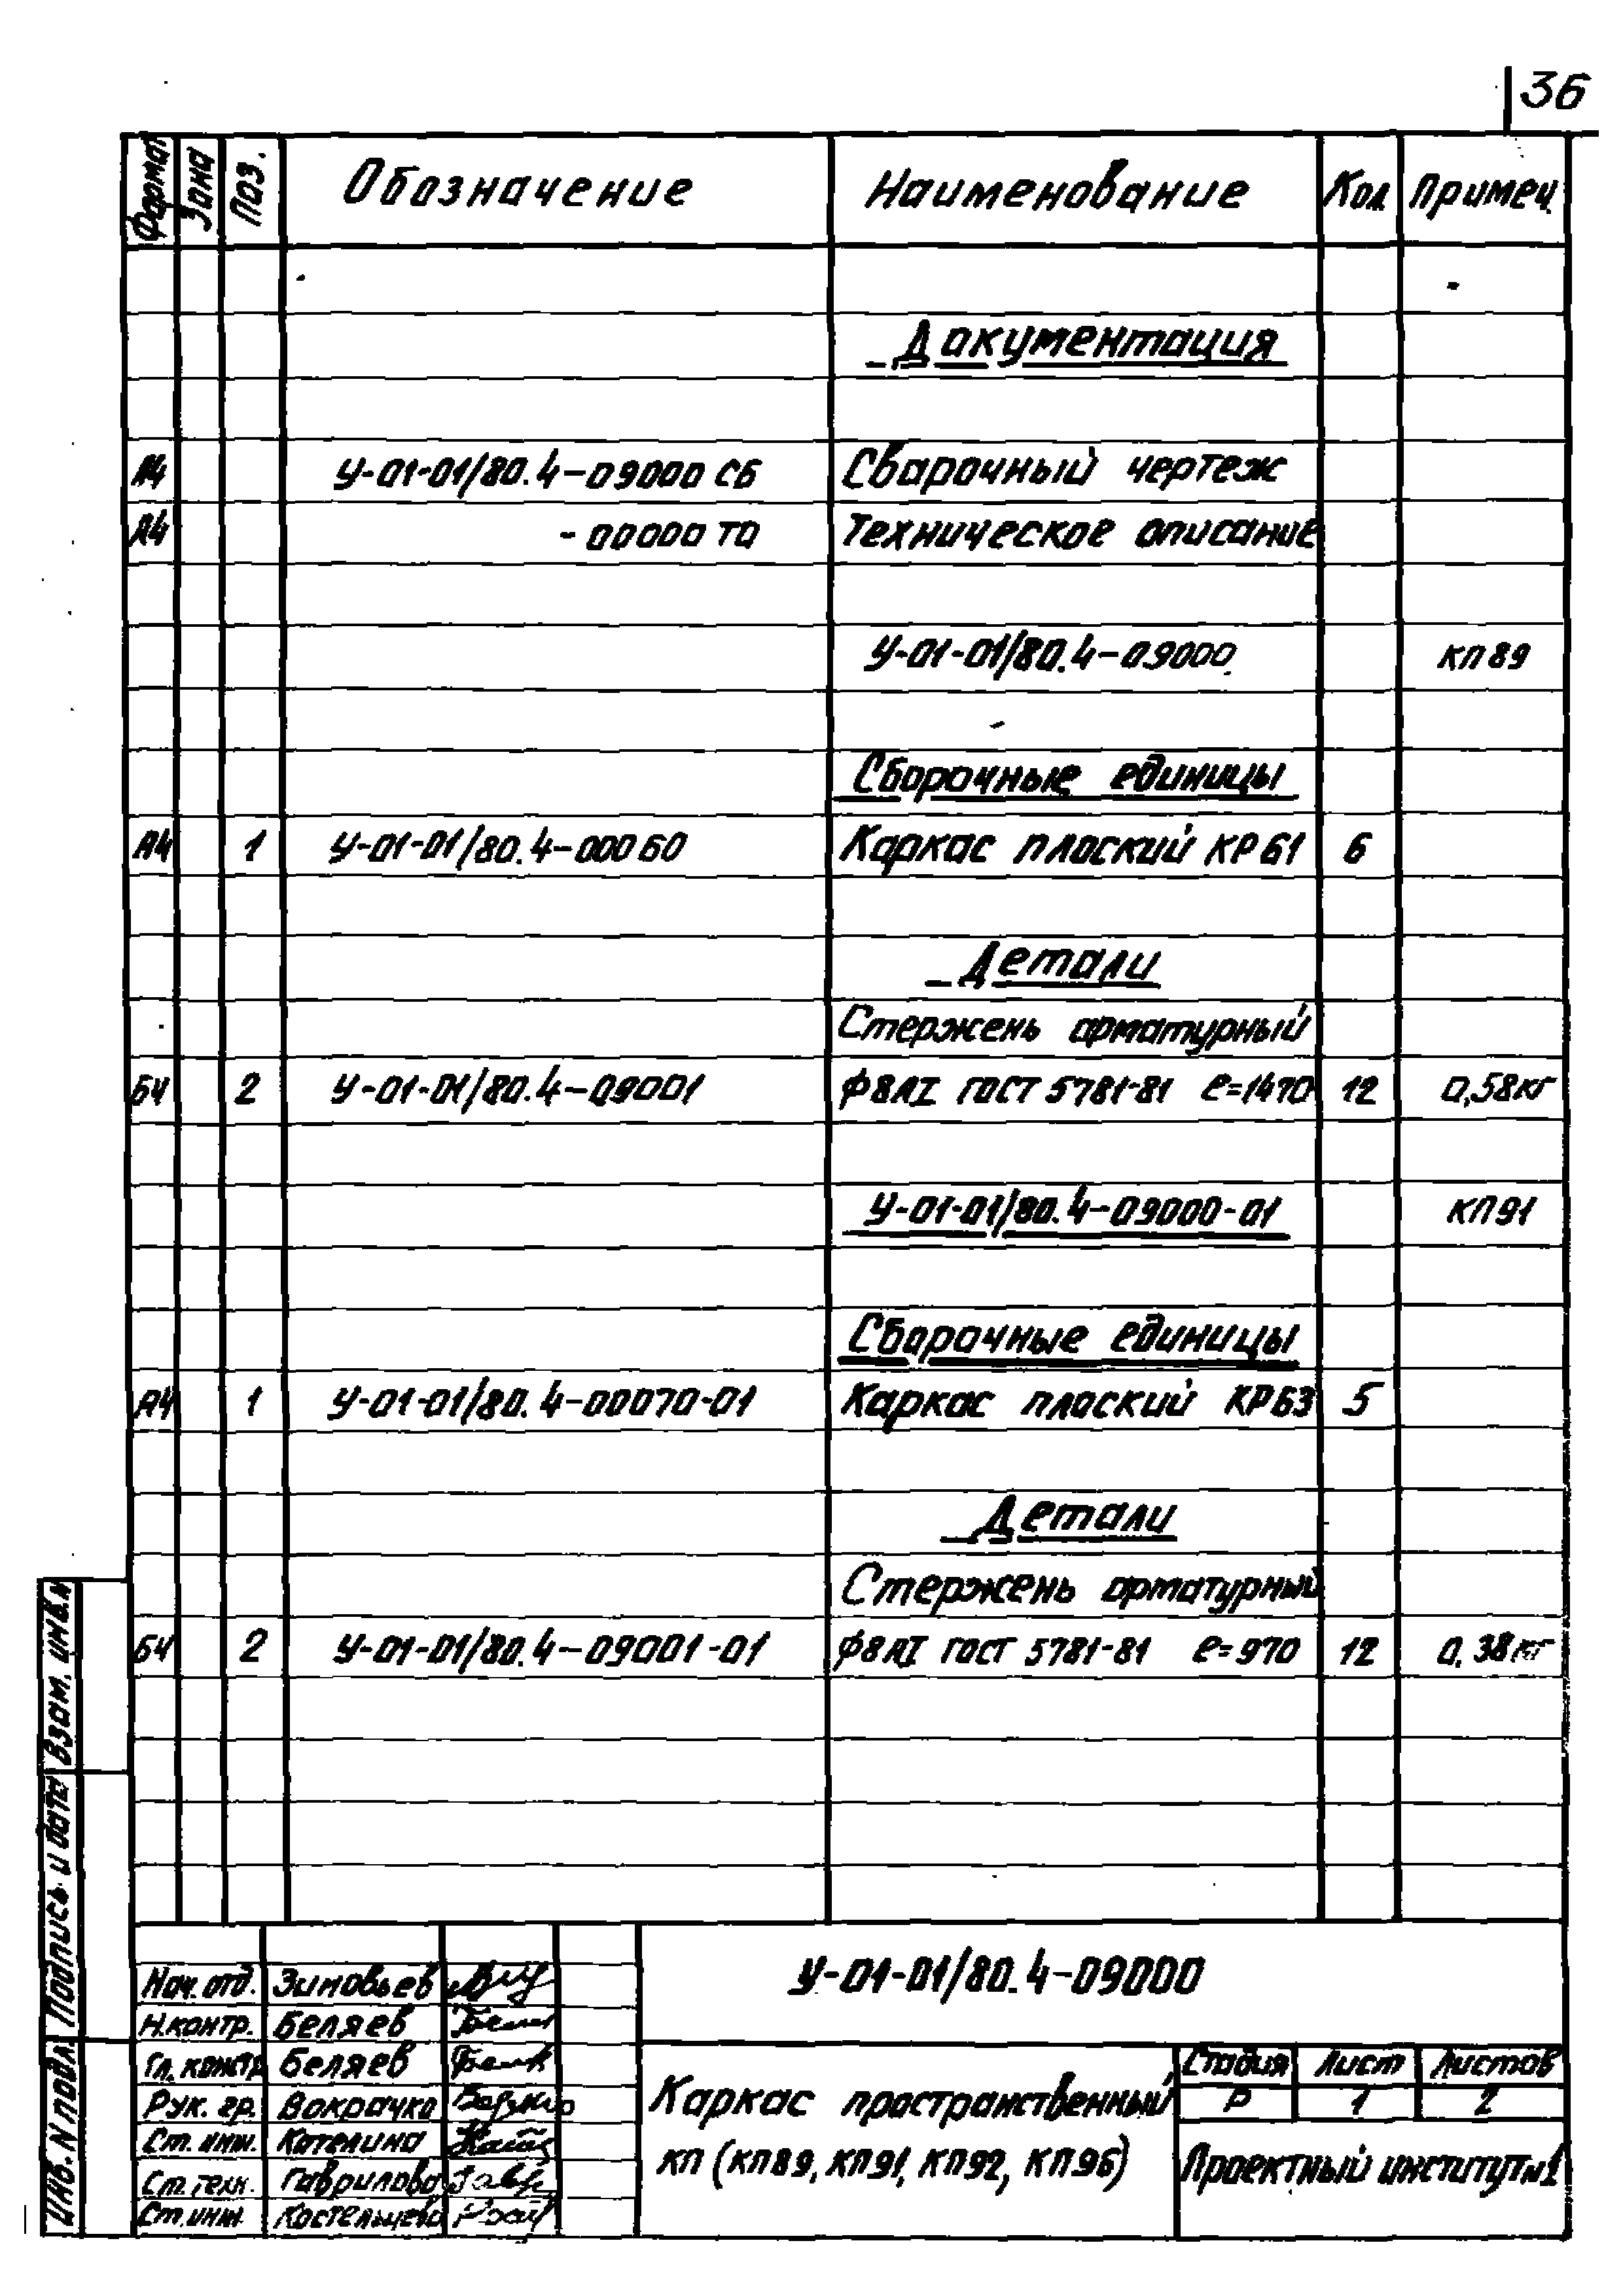 36
Формат Зона Поз. Обозначение Наименование Кол. Примеч.
Документация
А4 У-01-01/80.4-09000 СБ Сварочный чертеж
А4 -00000 ТО Техническое описание
У-01-01/80.4-09000 КП89
Сборочные единицы
А4 1 У-01-01/80.4-00060 Каркас плоский КР61 6
Детали
Стержень арматурный
БЧ 2 У-01-01/80.4-09001 Ф8АI ГОСТ 5781-81 ℓ=1470 12 0,58кг
У-01-01/80.4-09000-01 КП91
Сборочные единицы
А4 1 У-01-01/80.4-00070-01 Каркас плоский КР63 5
Детали
Стержень арматурный
БЧ 2 У-01-01/80.4-09001-01 Ф8АI ГОСТ 5781-81 ℓ=970 12 0,38кг
Взам. инв. N
Подпись и дата
Инв. N подл.
Нач. отд. Зиновьев
Н.контр. Беляев
Гл. констр. Беляев
Рук. гр. Вокрачко
Ст. инж. Котелина
Ст. техн. Гаврилова
Ст. инж. Костельцева
У-01-01/80.4-09000
Каркас пространственный
КП (КП89, КП91, КП92, КП96)
Стадия Лист Листов
Р 1 2
Проектный институт N1